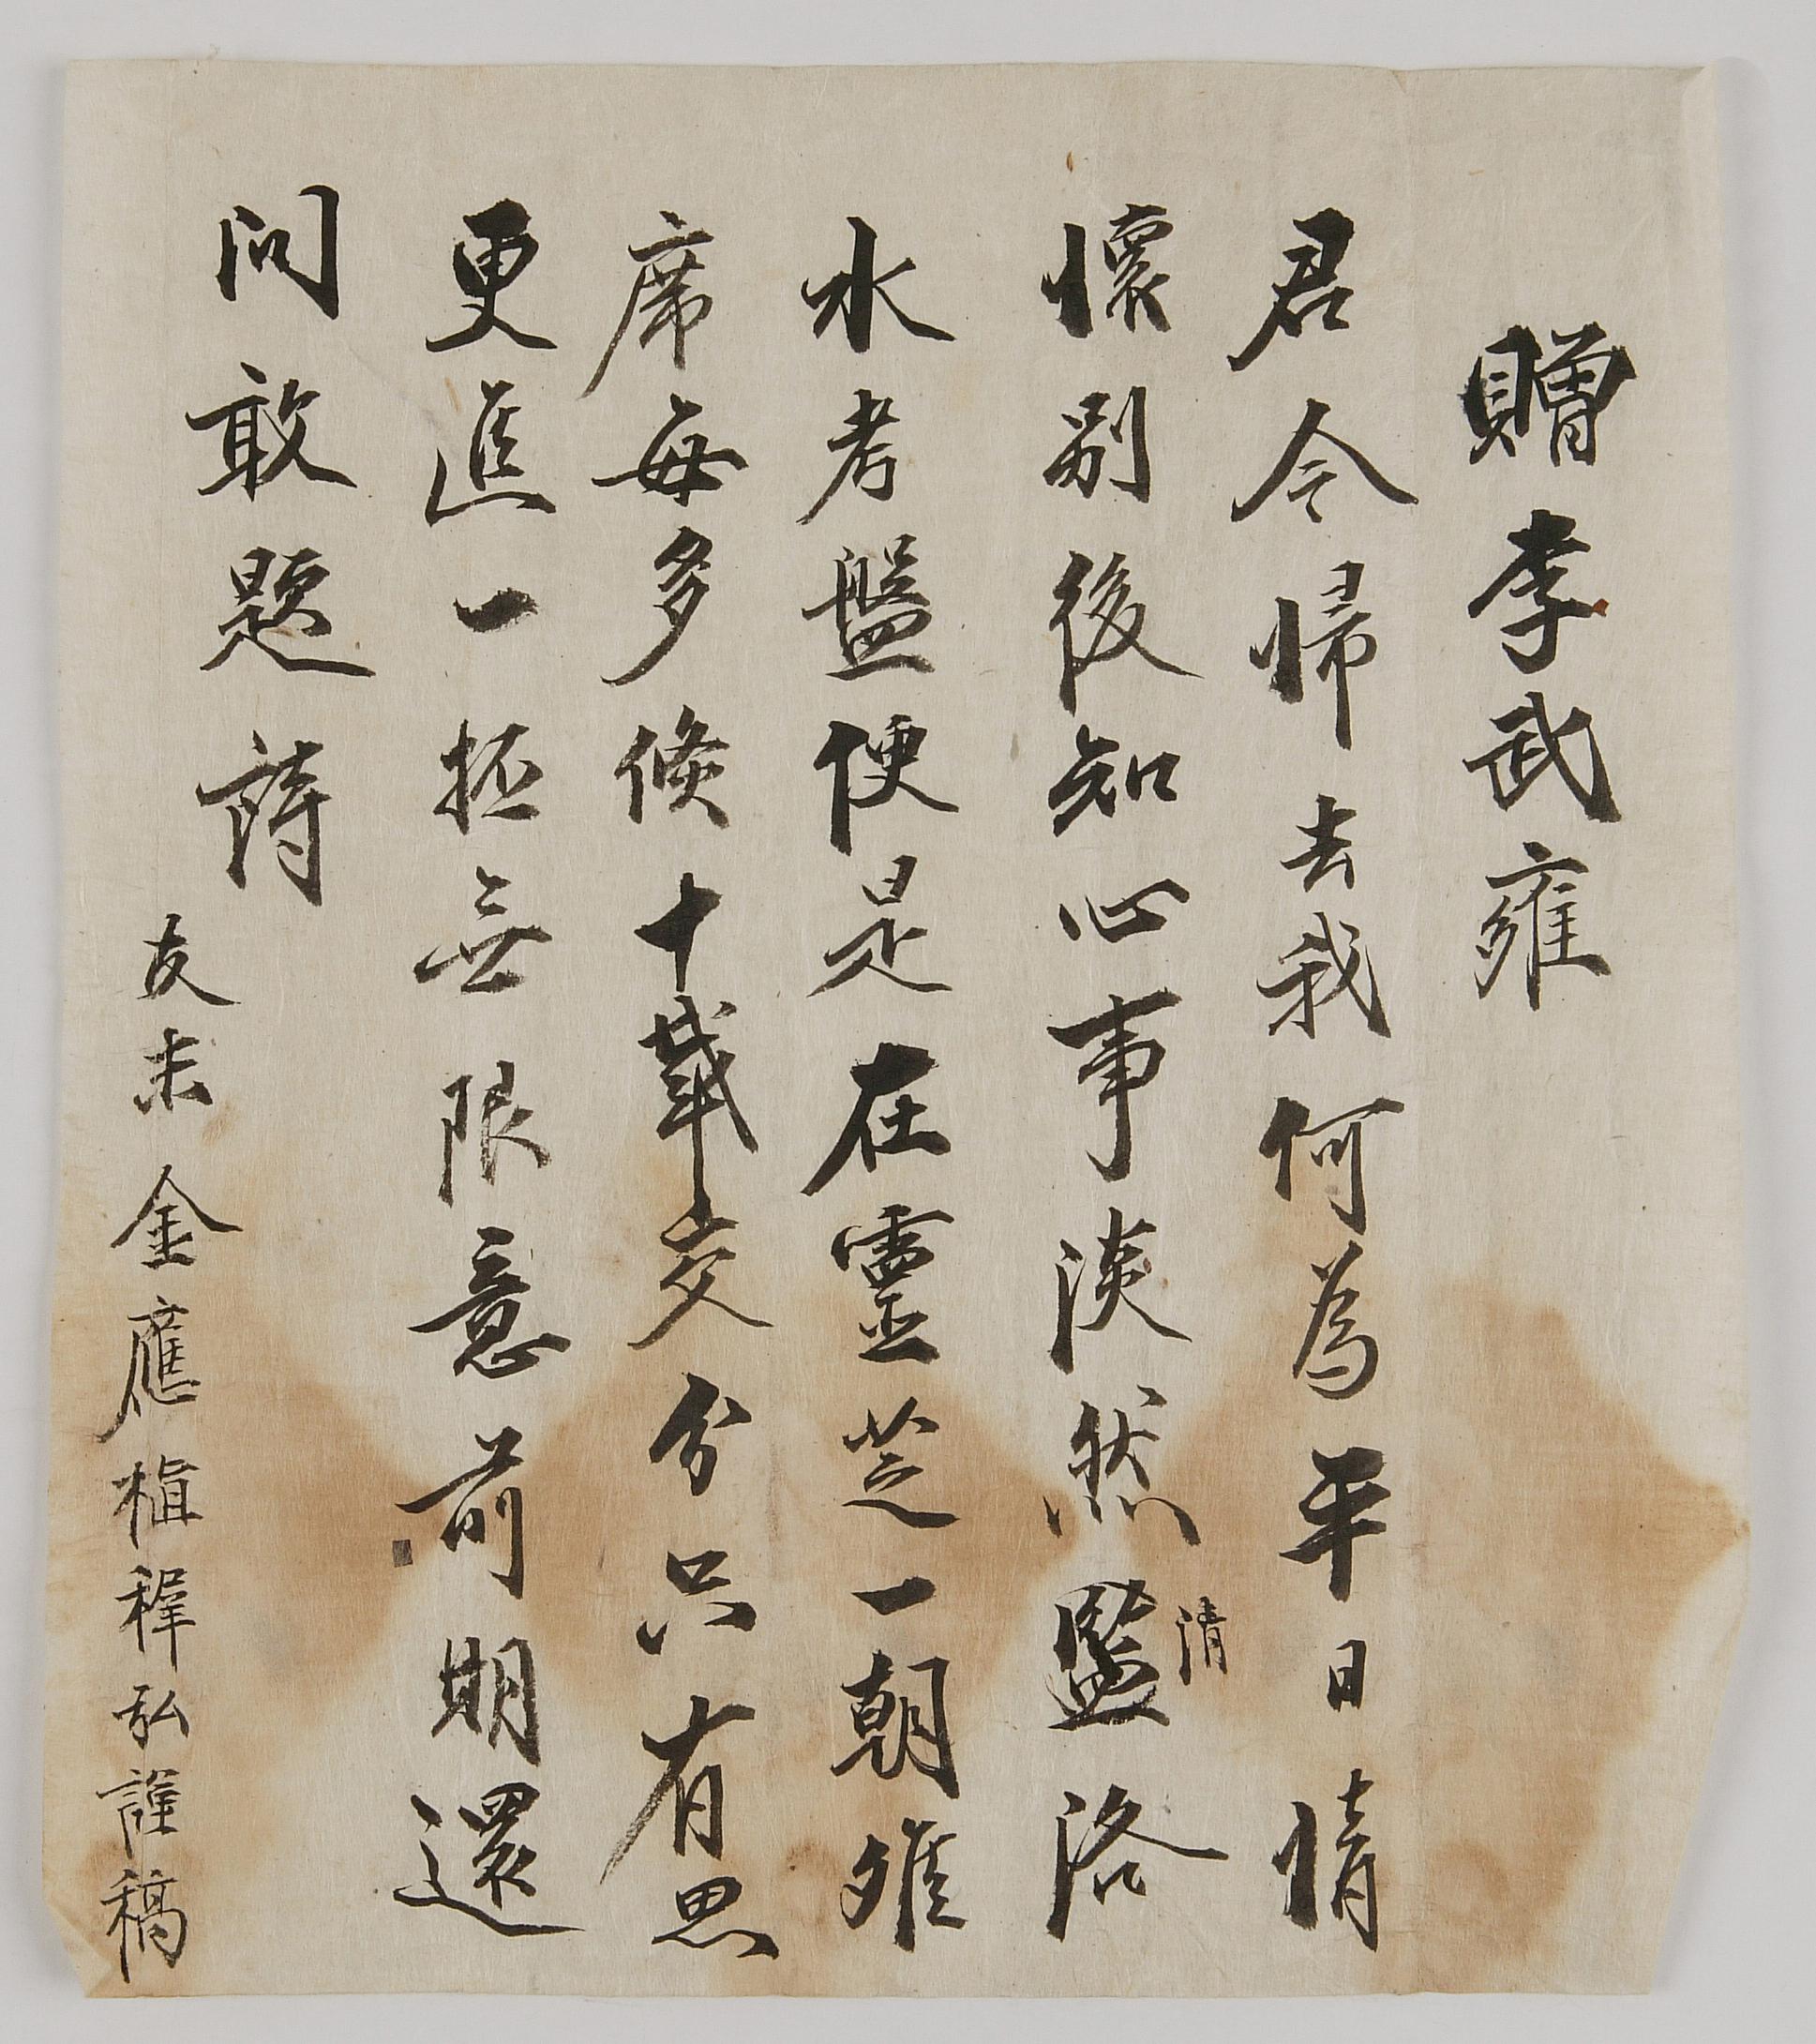 贈李武雍
君今歸去我何為平日情
懷別後知心事淡然監洛
清
水考盤便是在靈芝一朝難
席每多倐十載交分只有思
更進一抔無限意前期還
問敢題詩
友末金應植稺弘謹稿